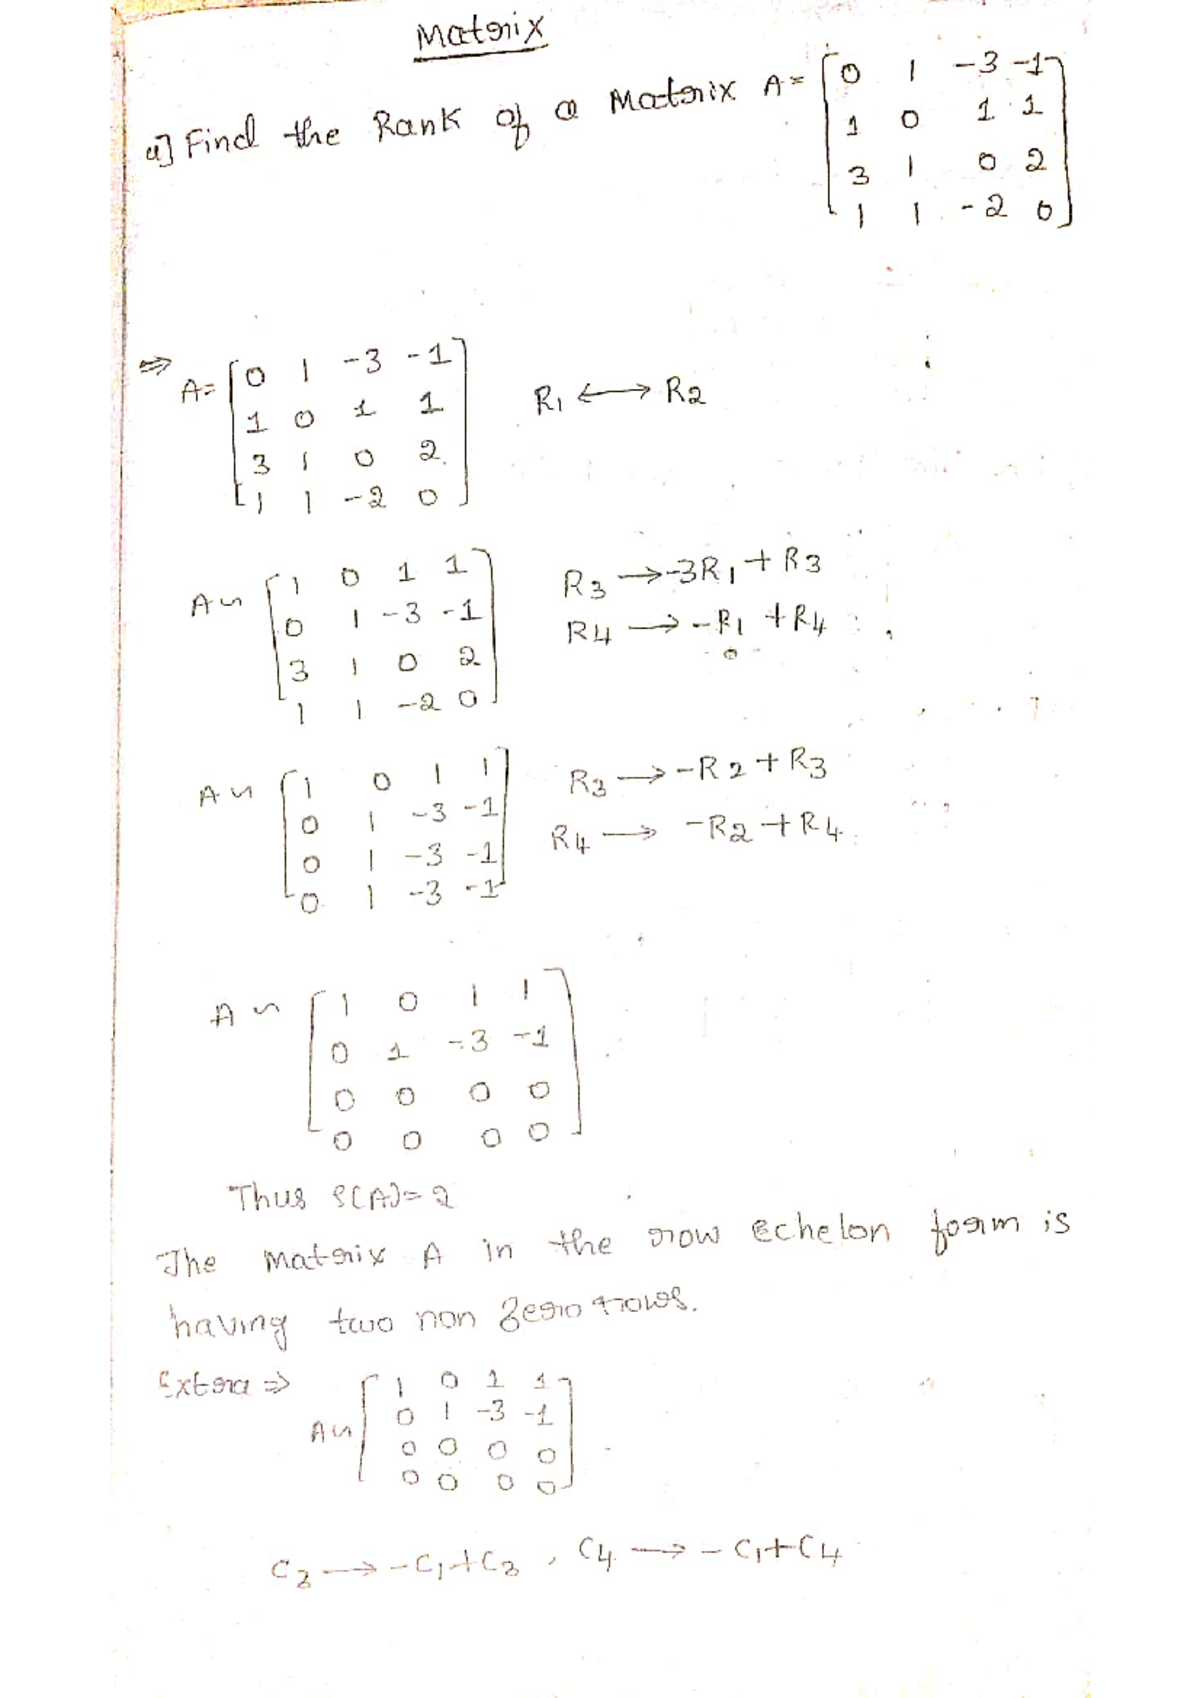 Matrix
a] Find the Rank of a Matrix A = [0 1 -3 -1
1 0 1 1
3 1 0 2
1 1 -2 0]
⇒ A = [0 1 -3 -1
1 0 1 1
3 1 0 2
1 1 -2 0] R1 ⟷ R2
A ~ [1 0 1 1
0 1 -3 -1
3 1 0 2
1 1 -2 0] R3 → -3R1 + R3
R4 → -R1 + R4
A ~ [1 0 1 1
0 1 -3 -1
0 1 -3 -1
0 1 -3 -1] R3 → -R2 + R3
R4 → -R2 + R4
A ~ [1 0 1 1
0 1 -3 -1
0 0 0 0
0 0 0 0]
Thus ρ(A) = 2
The Matrix A in the row echelon form is
having two non zero rows.
Extra ⇒
A ~ [1 0 1 1
0 1 -3 -1
0 0 0 0
0 0 0 0]
C3 → -C1 + C3 , C4 → -C1 + C4